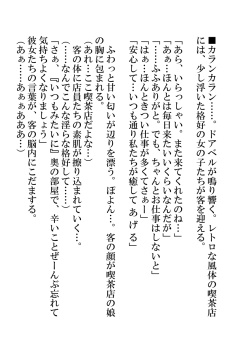 ■カランカラン……。ドアベルが鳴り響く。レトロな風体の喫茶店
には、少し浮いた格好の女の子たちが客を迎える。
「あら、いらっしゃい。また来てくれたのね…」
「あぁ…ほんとは毎日来たいくらいなんだが」
「…ふふありがと。でも、ちゃんとお仕事はしないと」
「はぁ…ほんときつい仕事が多くてさぁー」
「安心して…いつも通り私たちが癒して あ げ る」
ふわっと甘い匂いが辺りを漂う。ぽよん…。客の顔が喫茶店の娘
の胸に包まれる。
(あれ…ここ喫茶店だよな…)
客の体に店員たちの素肌が擦り込まれていく…。
(……なんでこんな淫らな格好して……)
「さぁ。『いつもみたいに』奥の部屋で、辛いことぜーんぶ忘れて
気持ちよくなりましょう」
彼女たちの言葉が、客の脳内にこだまする。
(あぁ……あぁぁああ…)